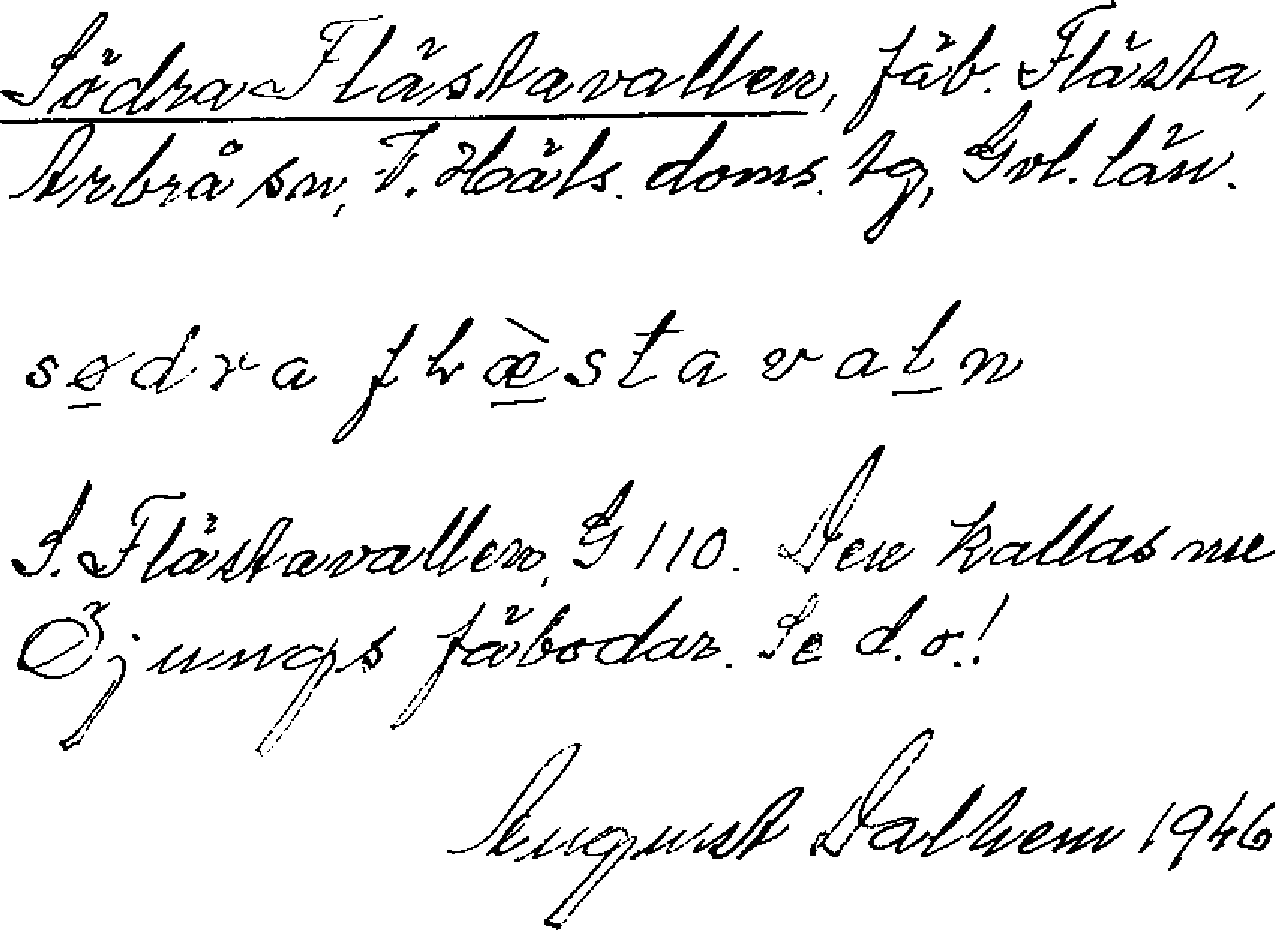 Södra Flästavallen, fäb. Flästa,
Arbrå sn, V. Häls. doms. tg, Gvl. län.
sødra flæ̀stavaln
S. Flästavallen, G 110. Den kallas nu
Öjungs fäbodar. Se d. o.!
August Dalhem 1946